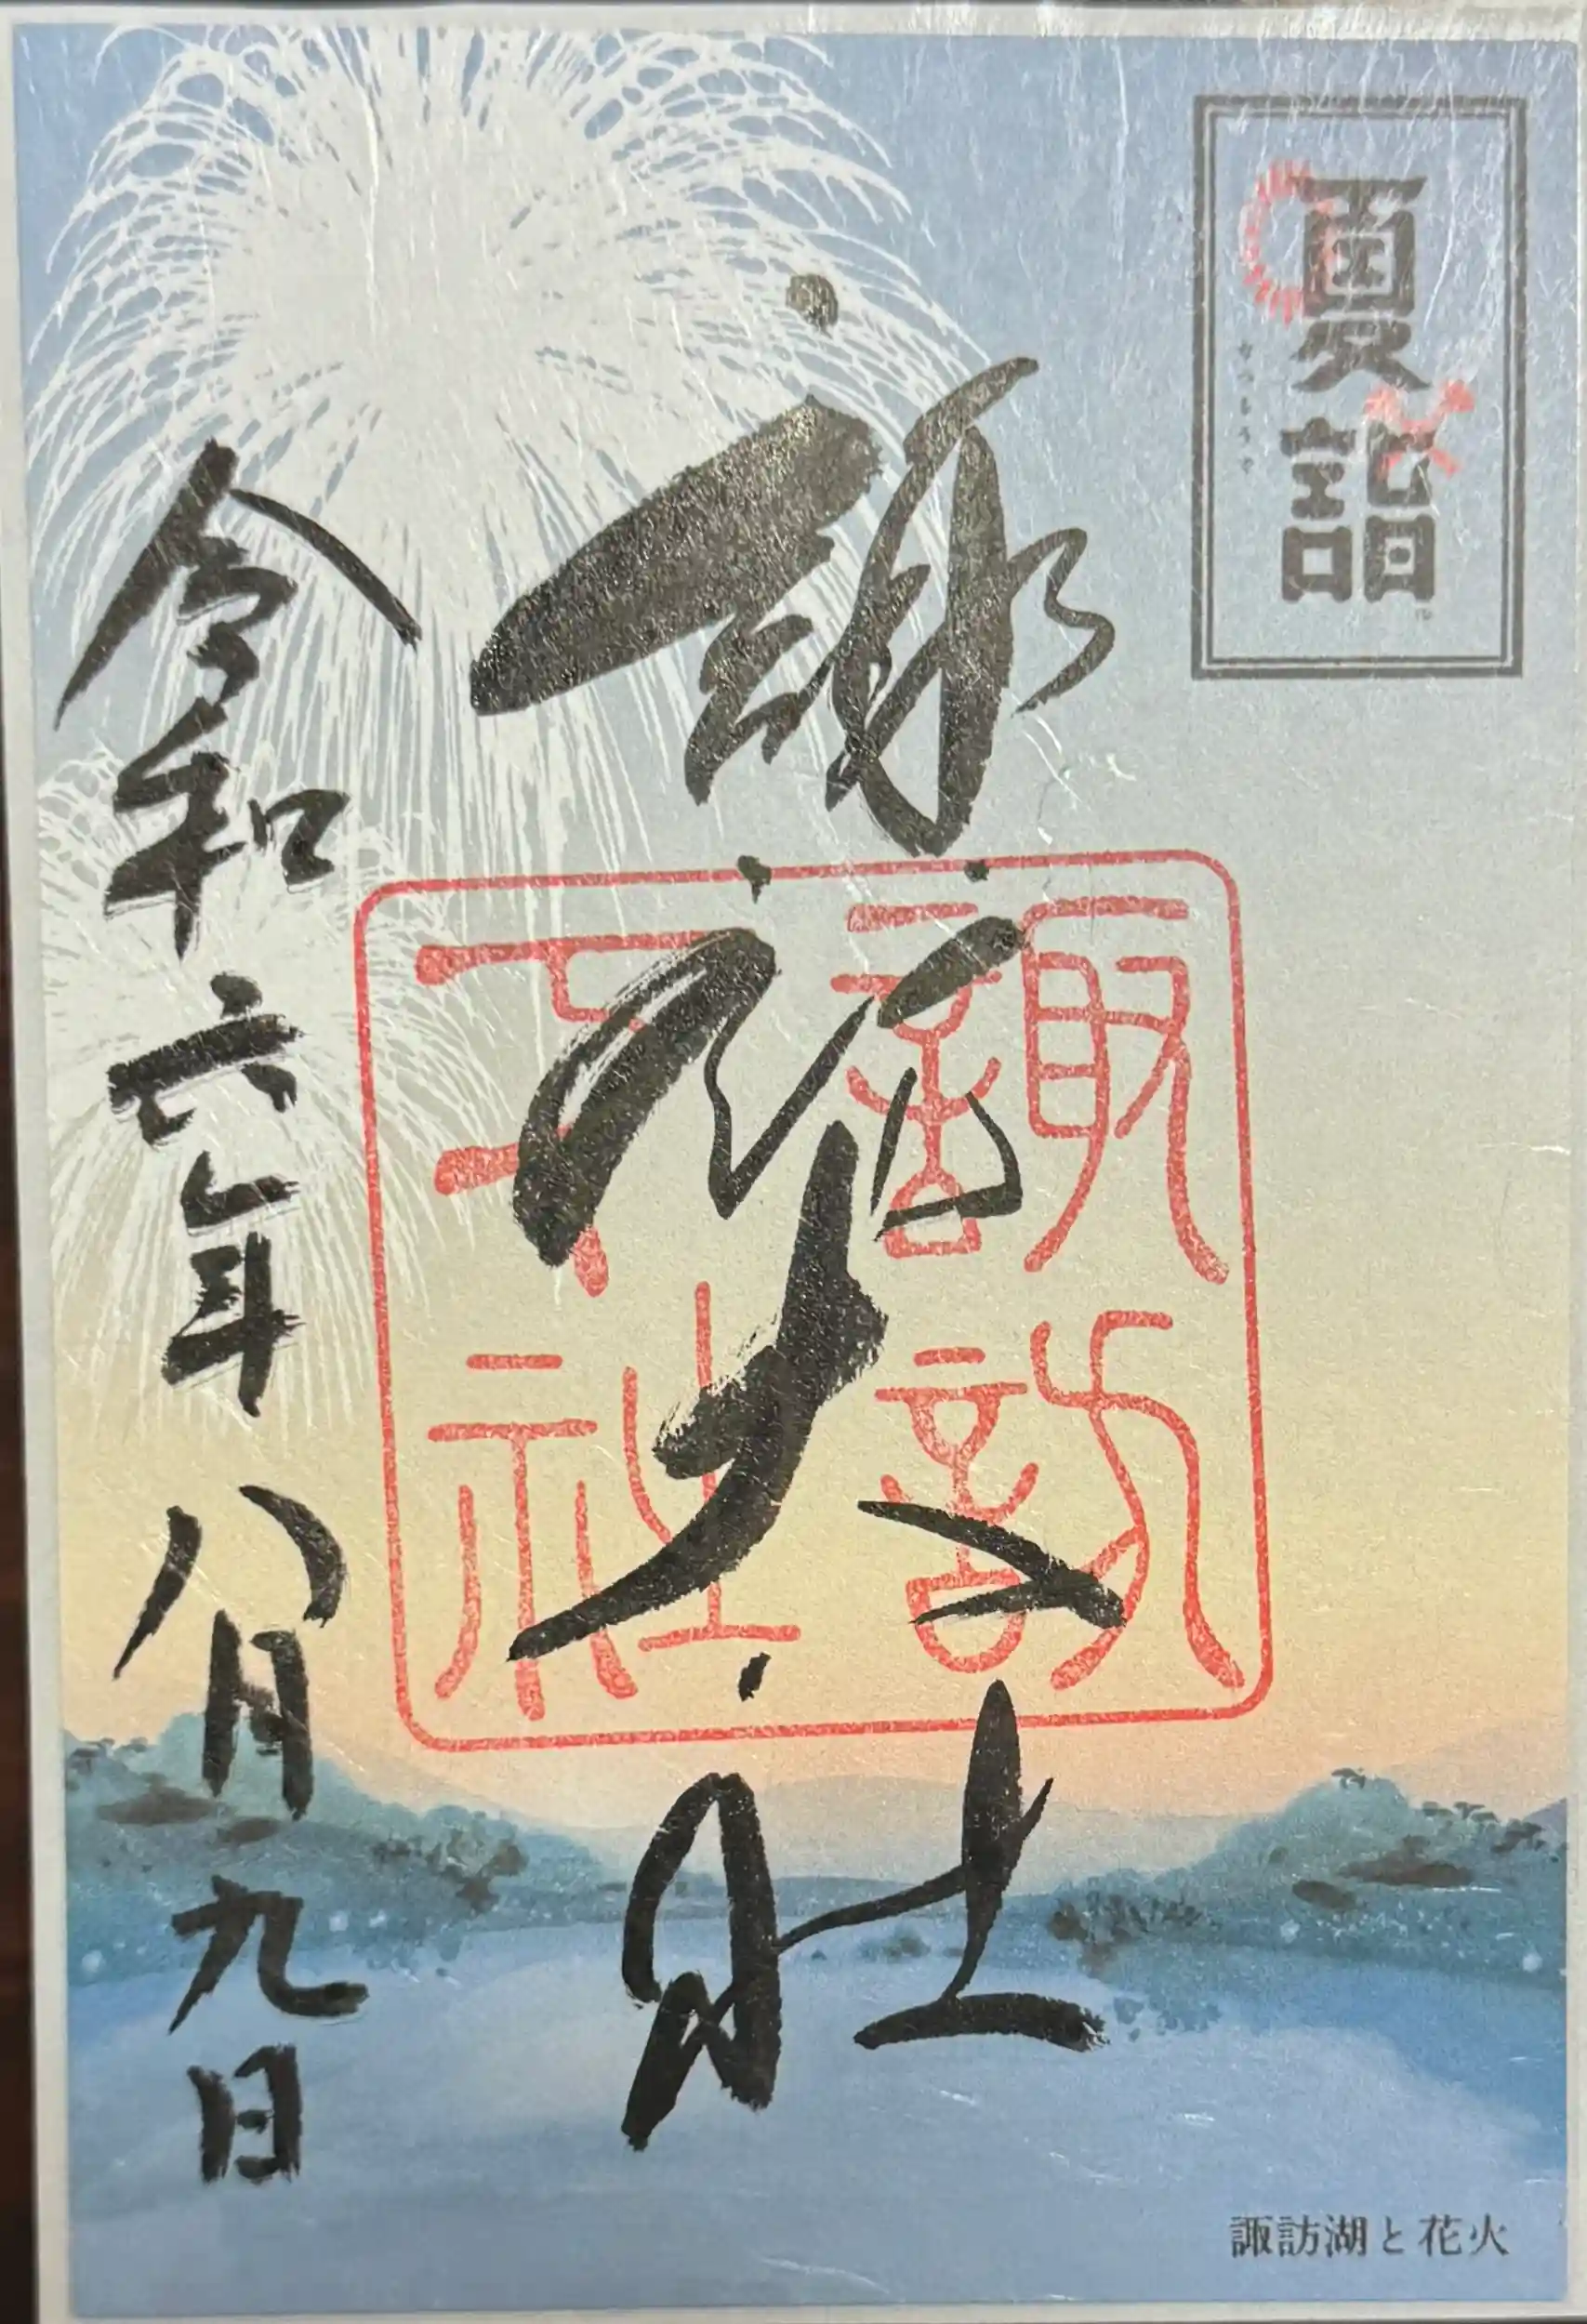 夏詣
なつもうで
諏訪大社
諏訪下社
令和六年八月九日
諏訪湖と花火